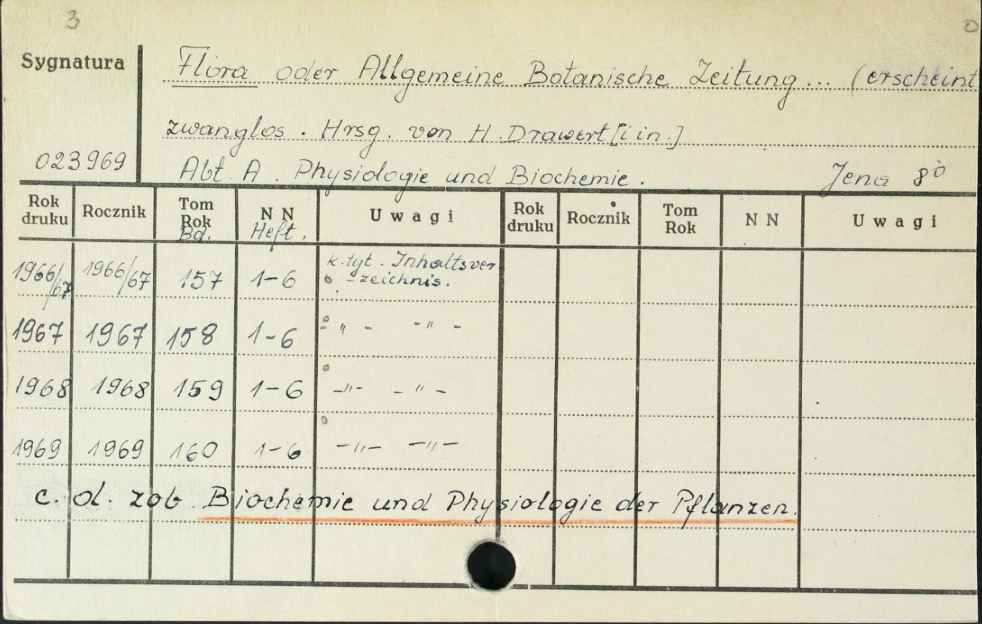 3
Sygnatura
Flora oder Allgemeine Botanische Zeitung... (erscheint
zwanglos. Hrsg. von H. Drawert [i in.]
023969
Abt A. Physiologie und Biochemie. Jena 8°
Rok druku Rocznik Tom Rok Bd. N N Heft. Uwagi Rok druku Rocznik Tom Rok N N Uwagi
1966/67 1966/67 157 1-6 k. tyt. Inhaltsver
-zeichnis.
1967 1967 158 1-6 -"- -"-
1968 1968 159 1-6 -"- -"-
1969 1969 160 1-6 -"- -"-
c. d. zob. Biochemie und Physiologie der Pflanzen.